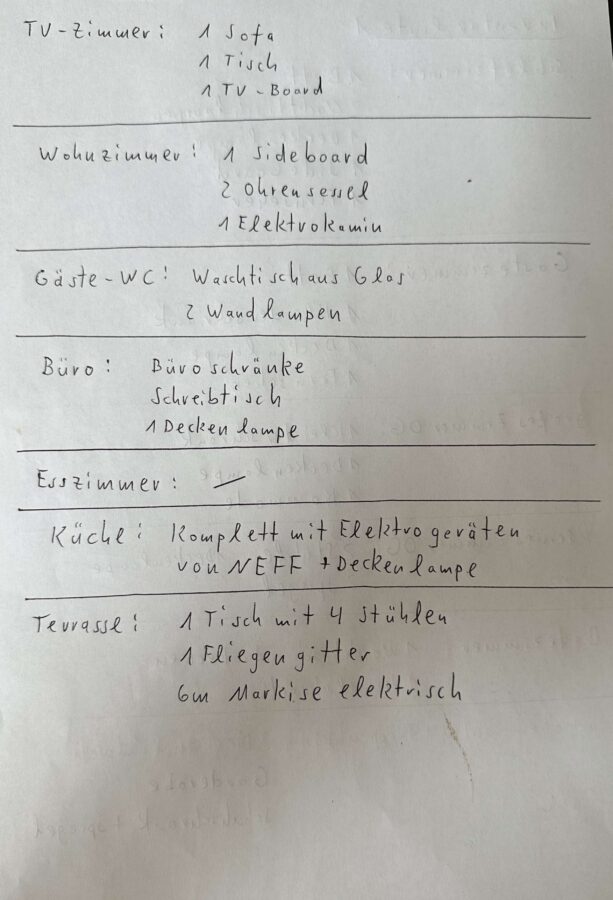 TV-Zimmer: 1 Sofa
1 Tisch
1 TV-Board
Wohnzimmer: 1 Sideboard
2 Ohrensessel
1 Elektrokamin
Gäste-WC: Waschtisch aus Glas
2 Wandlampen
Büro: Büroschränke
Schreibtisch
1 Deckenlampe
Esszimmer: —
Küche: Komplett mit Elektrogeräten
von NEFF + Deckenlampe
Terrasse: 1 Tisch mit 4 Stühlen
1 Fliegengitter
6m Markise elektrisch